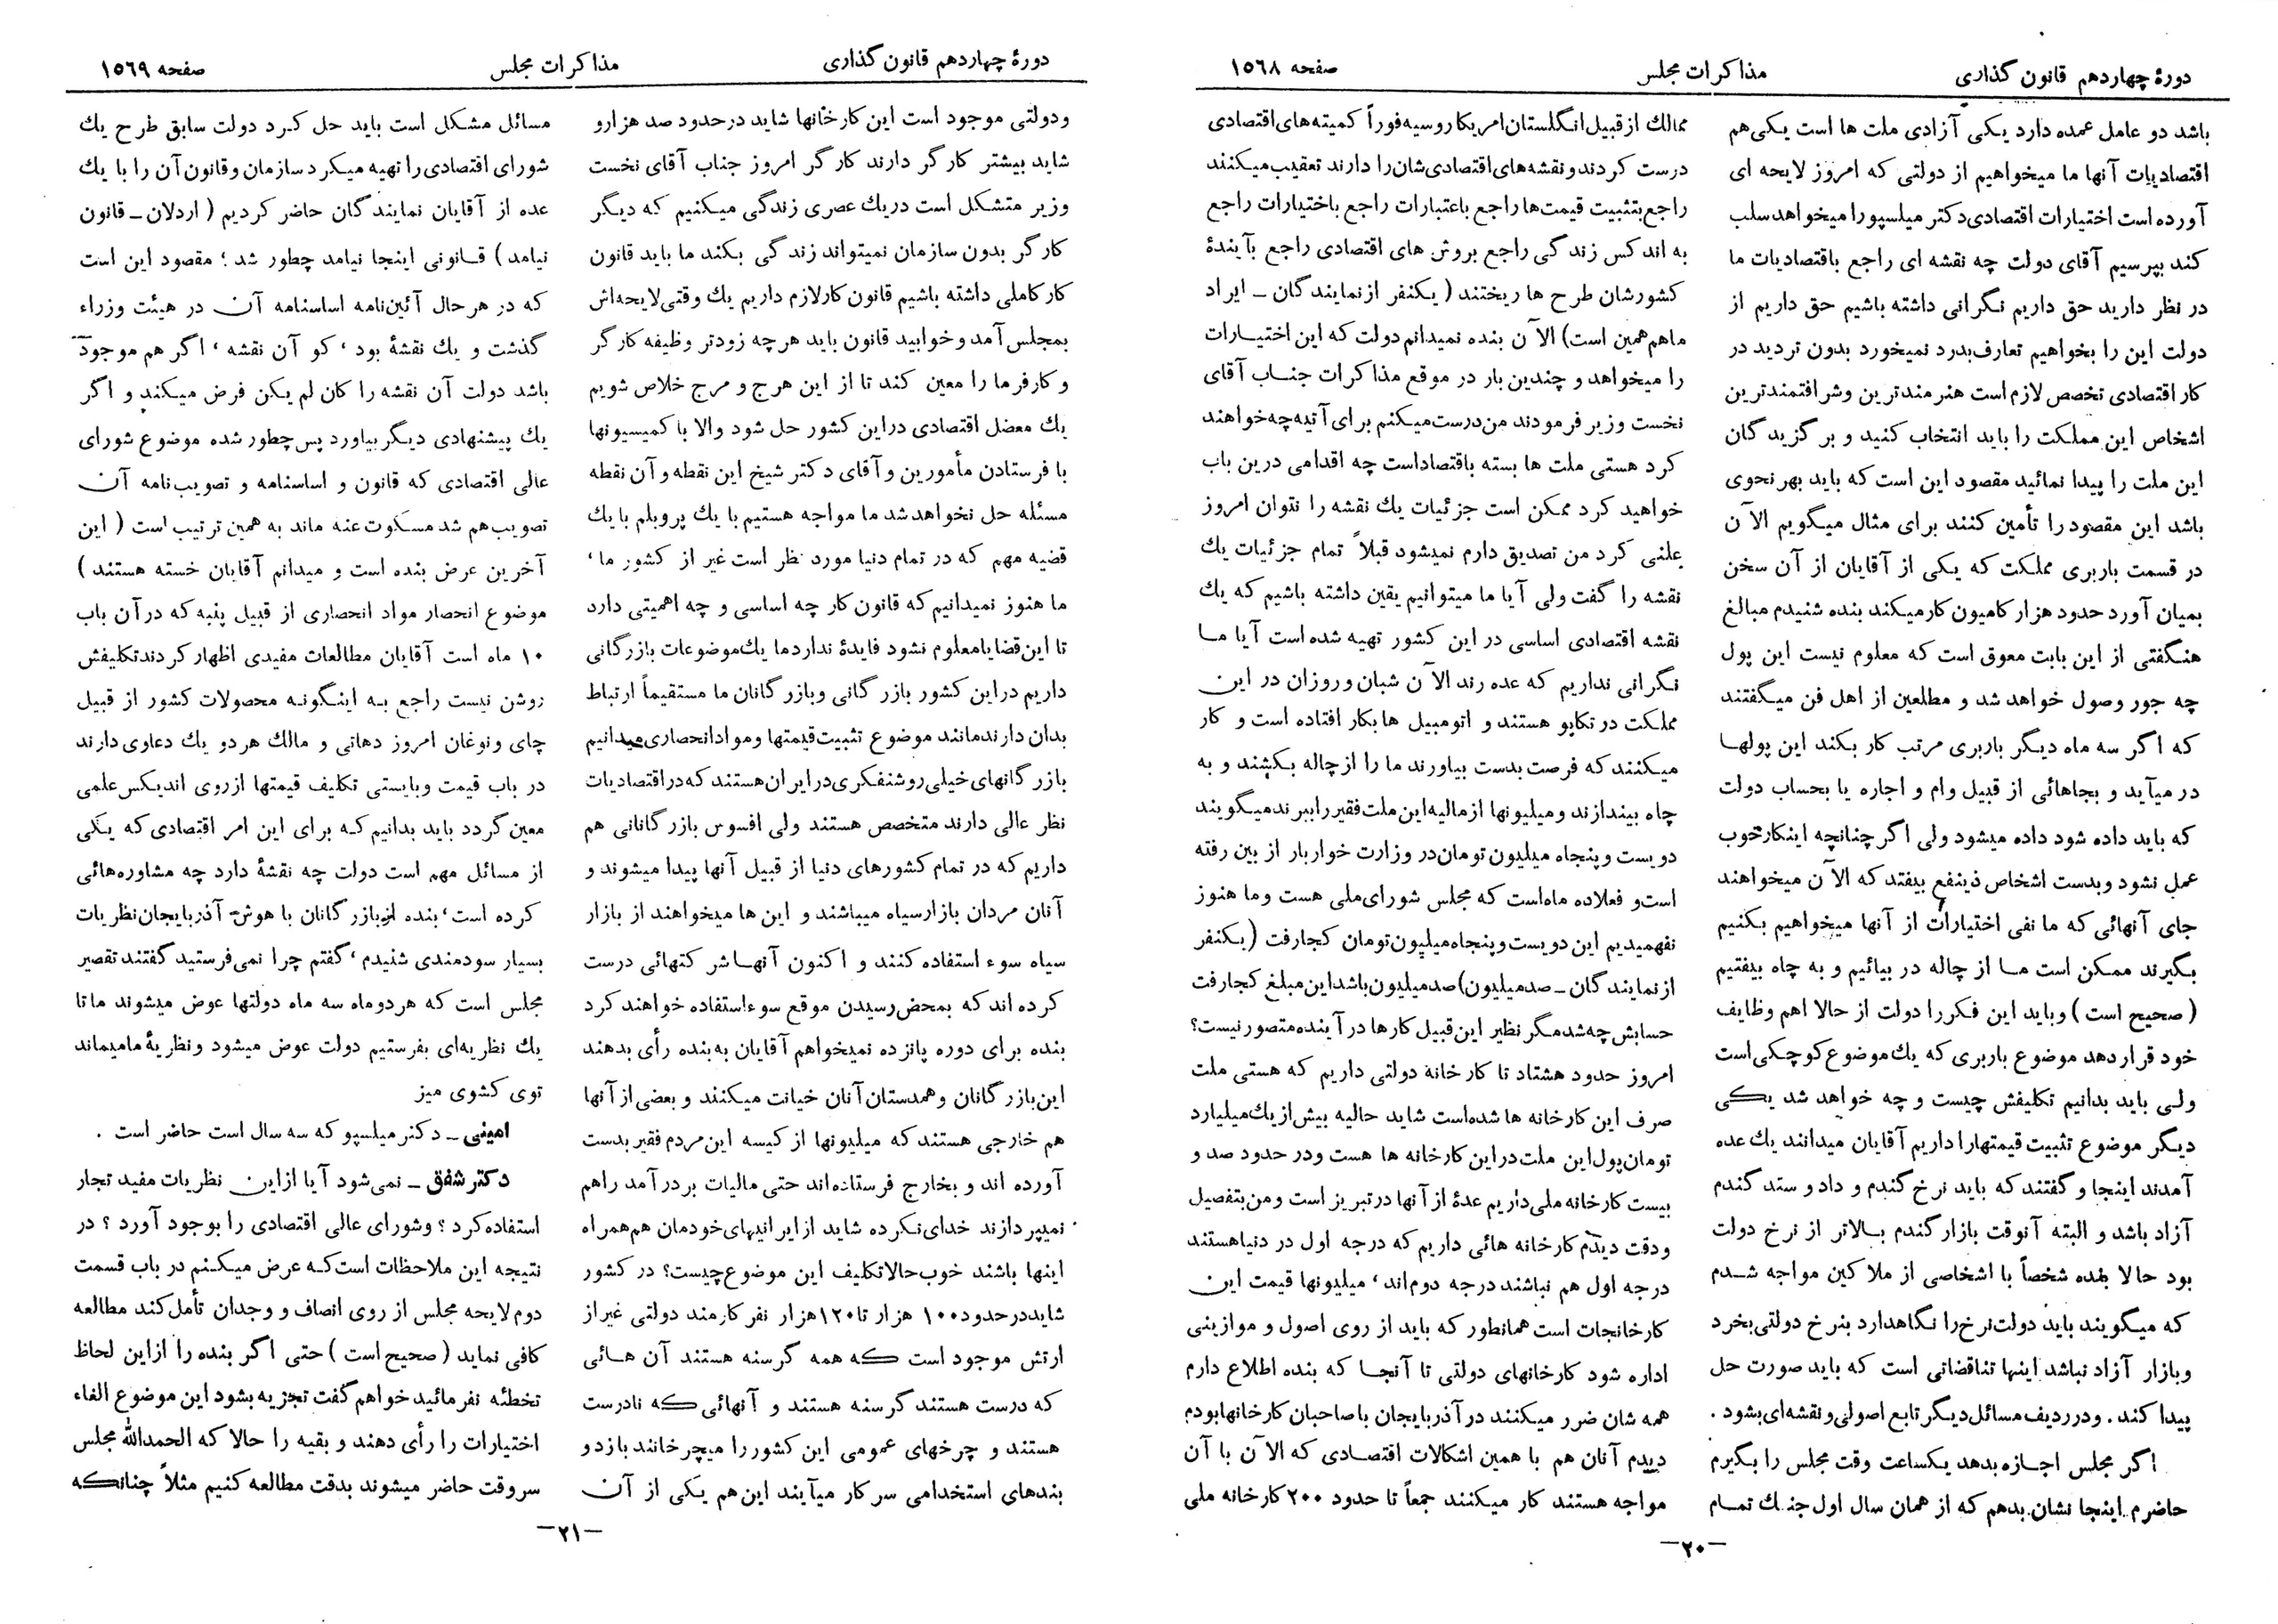 دورهٔ چهاردهم قانون گذاری
مذاکرات مجلس
صفحه ۱۵۶۸
باشد دو عامل عمده دارد یکی آزادی ملت ها است یکی هم
اقتصادیات آنها ما میخواهیم از دولتی که امروز لایحه ای
آورده است اختیارات اقتصادی دکتر میلسپو را میخواهد سلب
کند بپرسیم آقای دولت چه نقشه ای راجع باقتصادیات ما
در نظر دارید حق داریم نگرانی داشته باشیم حق داریم از
دولت این را بخواهیم تعارف بدرد نمیخورد بدون تردید در
کار اقتصادی تخصص لازم است هنرمندترین و شرافتمندترین
اشخاص این مملکت را باید انتخاب کنید و برگزیدگان
این ملت را پیدا نمائید مقصود این است که باید بهر نحوی
باشد این مقصود را تأمین کنند برای مثال میگویم الآن
در قسمت باربری مملکت که یکی از آقایان از آن سخن
بمیان آورد حدود هزار کامیون کار میکند بنده شنیدم مبالغ
هنگفتی از این بابت معوق است که معلوم نیست این پول
چه جور وصول خواهد شد و مطلعین از اهل فن میگفتند
که اگر سه ماه دیگر باربری مرتب کار بکند این پولها
در میآید و بجاهائی از قبیل وام و اجاره یا بحساب دولت
که باید داده شود داده میشود ولی اگر چنانچه اینکار خوب
عمل نشود و بدست اشخاص ذینفع بیفتد که الآن میخواهند
جای آنهائی که ما نفی اختیارات از آنها میخواهیم بکنیم
بگیرند ممکن است ما از چاله در بیائیم و به چاه بیفتیم
( صحیح است ) و باید این فکر را دولت از حالا اهم وظایف
خود قرار دهد موضوع باربری که یك موضوع کوچکی است
ولی باید بدانیم تکلیفش چیست و چه خواهد شد یکی
دیگر موضوع تثبیت قیمتها را داریم آقایان میدانند یك عده
آمدند اینجا و گفتند که باید نرخ گندم و داد و ستد گندم
آزاد باشد و البته آنوقت بازار گندم بالاتر از نرخ دولت
بود حالا بنده شخصاً با اشخاصی از ملاکین مواجه شدم
که میگویند باید دولت نرخ را نگاهدارد بنرخ دولتی بخرد
و بازار آزاد نباشد اینها تناقضاتی است که باید صورت حل
پیدا کند . و در ردیف مسائل دیگر تابع اصولی و نقشه‌ای بشود .
اگر مجلس اجازه بدهد یکساعت وقت مجلس را بگیرم
حاضرم اینجا نشان بدهم که از همان سال اول جنك تمام
ممالك از قبیل انگلستان امریکا روسیه فوراً کمیته های اقتصادی
درست کردند و نقشه های اقتصادی شان را دارند تعقیب میکنند
راجع بتثبیت قیمت ها راجع باعتبارات راجع باختیارات راجع
به اندکس زندگی راجع بروش های اقتصادی راجع بآیندهٔ
کشورشان طرح ها ریختند ( یکنفر از نمایندگان ـ ایراد
ما هم همین است) الآن بنده نمیدانم دولت که این اختیارات
را میخواهد و چندین بار در موقع مذاکرات جناب آقای
نخست وزیر فرمودند من درست میکنم برای آتیه چه خواهند
کرد هستی ملت ها بسته باقتصاد است چه اقدامی درین باب
خواهید کرد ممکن است جزئیات یك نقشه را نتوان امروز
علنی کرد من تصدیق دارم نمیشود قبلاً تمام جزئیات یك
نقشه را گفت ولی آیا ما میتوانیم یقین داشته باشیم که یك
نقشه اقتصادی اساسی در این کشور تهیه شده است آیا ما
نگرانی نداریم که عده رند الآن شبان و روزان در این
مملکت در تکاپو هستند و اتومبیل ها بکار افتاده است و کار
میکنند که فرصت بدست بیاورند ما را از چاله بکشند و به
چاه بیندازند و میلیونها از مالیه این ملت فقیر را ببرند میگویند
دویست و پنجاه میلیون تومان در وزارت خواربار از بین رفته
است و فعلا ده ماه است که مجلس شورای ملی هست و ما هنوز
نفهمیدیم این دویست و پنجاه میلیون تومان کجا رفت (یکنفر
از نمایندگان ـ صد میلیون) صد میلیون باشد این مبلغ کجا رفت
حسابش چه شد مگر نظیر این قبیل کارها در آینده متصور نیست؟
امروز حدود هشتاد تا کارخانه دولتی داریم که هستی ملت
صرف این کارخانه ها شده است شاید حالیه بیش از یك میلیارد
تومان پول این ملت در این کارخانه ها هست و در حدود صد و
بیست کارخانه ملی داریم عدهٔ از آنها در تبریز است و من بتفصیل
و دقت دیدم کارخانه هائی داریم که درجه اول در دنیا هستند
درجه اول هم نباشند درجه دوم اند، میلیونها قیمت این
کارخانجات است همانطور که باید از روی اصول و موازینی
اداره شود کارخانهای دولتی تا آنجا که بنده اطلاع دارم
همه شان ضرر میکنند در آذربایجان با صاحبان کارخانها بودم
دیدم آنان هم با همین اشکالات اقتصادی که الآن با آن
مواجه هستند کار میکنند جمعاً تا حدود ۲۰۰ کارخانه ملی
ـ۲۰ـ
دورهٔ چهاردهم قانون گذاری
مذاکرات مجلس
صفحه ۱۵۶۹
و دولتی موجود است این کارخانها شاید در حدود صد هزار و
شاید بیشتر کارگر دارند کارگر امروز جناب آقای نخست
وزیر متشکل است در یك عصری زندگی میکنیم که دیگر
کارگر بدون سازمان نمیتواند زندگی بکند ما باید قانون
کار کاملی داشته باشیم قانون کار لازم داریم یك وقتی لایحه‌اش
بمجلس آمد و خوابید قانون باید هرچه زودتر وظیفه کارگر
و کارفرما را معین کند تا از این هرج و مرج خلاص شویم
یك معضل اقتصادی در این کشور حل شود والا با کمیسیونها
با فرستادن مأمورین و آقای دکتر شیخ این نقطه و آن نقطه
مسئله حل نخواهد شد ما مواجه هستیم با یك پروبلم با یك
قضیه مهم که در تمام دنیا مورد نظر است غیر از کشور ما،
ما هنوز نمیدانیم که قانون کار چه اساسی و چه اهمیتی دارد
تا این قضایا معلوم نشود فایدهٔ ندارد ما یك موضوعات بازرگانی
داریم در این کشور بازرگانی و بازرگانان ما مستقیماً ارتباط
بدان دارند مانند موضوع تثبیت قیمتها و مواد انحصاری میدانیم
بازرگانهای خیلی روشنفکری در ایران هستند که در اقتصادیات
نظر عالی دارند متخصص هستند ولی افسوس بازرگانانی هم
داریم که در تمام کشورهای دنیا از قبیل آنها پیدا میشوند و
آنان مردان بازار سیاه میباشند و این ها میخواهند از بازار
سیاه سوء استفاده کنند و اکنون آنها شرکتهائی درست
کرده اند که بمحض رسیدن موقع سوء استفاده خواهند کرد
بنده برای دوره پانزده نمیخواهم آقایان به بنده رأی بدهند
این بازرگانان و همدستان آنان خیانت میکنند و بعضی از آنها
هم خارجی هستند که میلیونها از کیسه این مردم فقیر بدست
آورده اند و بخارج فرستاده‌اند حتی مالیات بر درآمد را هم
نمیپردازند خدای نکرده شاید از ایرانیهای خودمان هم همراه
اینها باشند خوب حالا تکلیف این موضوع چیست؟ در کشور
شاید در حدود ۱۰۰ هزار تا ۱۲۰ هزار نفر کارمند دولتی غیر از
ارتش موجود است که همه گرسنه هستند آن هائی
که درست هستند گرسنه هستند و آنهائی که نادرست
هستند و چرخهای عمومی این کشور را میچرخانند بازد و
بندهای استخدامی سر کار میآیند این هم یکی از آن
مسائل مشکل است باید حل کرد دولت سابق طرح یك
شورای اقتصادی را تهیه میکرد سازمان و قانون آن را با یك
عده از آقایان نمایندگان حاضر کردیم ( اردلان ـ قانون
نیامد ) قانونی اینجا نیامد چطور شد ؛ مقصود این است
که در هر حال آئین‌نامه اساسنامه آن در هیئت وزراء
گذشت و یك نقشهٔ بود ، کو آن نقشه ، اگر هم موجود
باشد دولت آن نقشه را کان لم یکن فرض میکند و اگر
یك پیشنهادی دیگر بیاورد پس چطور شده موضوع شورای
عالی اقتصادی که قانون و اساسنامه و تصویب نامه آن
تصویب هم شد مسکوت عنه ماند به همین ترتیب است ( این
آخرین عرض بنده است و میدانم آقایان خسته هستند )
موضوع انحصار مواد انحصاری از قبیل پنبه که در آن باب
۱۰ ماه است آقایان مطالعات مفیدی اظهار کردند تکلیفش
روشن نیست راجع به اینگونه محصولات کشور از قبیل
چای و نوغان امروز دهاتی و مالك هر دو یك دعاوی دارند
در باب قیمت و بایستی تکلیف قیمتها از روی اندیکس علمی
معین گردد باید بدانیم که برای این امر اقتصادی که یکی
از مسائل مهم است دولت چه نقشهٔ دارد چه مشاوره‌هائی
کرده است ، بنده از بازرگانان با هوش آذربایجان نظریات
بسیار سودمندی شنیدم ، گفتم چرا نمی فرستید گفتند تقصیر
مجلس است که هر دو ماه سه ماه دولتها عوض میشوند ما تا
یك نظریه‌ای بفرستیم دولت عوض میشود و نظریهٔ ما میماند
توی کشوی میز
امینی ـ دکتر میلسپو که سه سال است حاضر است .
دکتر شفق ـ نمی شود آیا از این نظریات مفید تجار
استفاده کرد ؟ و شورای عالی اقتصادی را بوجود آورد ؟ در
نتیجه این ملاحظات است که عرض میکنم در باب قسمت
دوم لایحه مجلس از روی انصاف و وجدان تأمل کند مطالعه
کافی نماید ( صحیح است ) حتی اگر بنده را از این لحاظ
تخطئه نفرمائید خواهم گفت تجزیه بشود این موضوع الغاء
اختیارات را رأی دهند و بقیه را حالا که الحمدالله مجلس
سر وقت حاضر میشوند بدقت مطالعه کنیم مثلاً چنانکه
ـ۲۱ـ